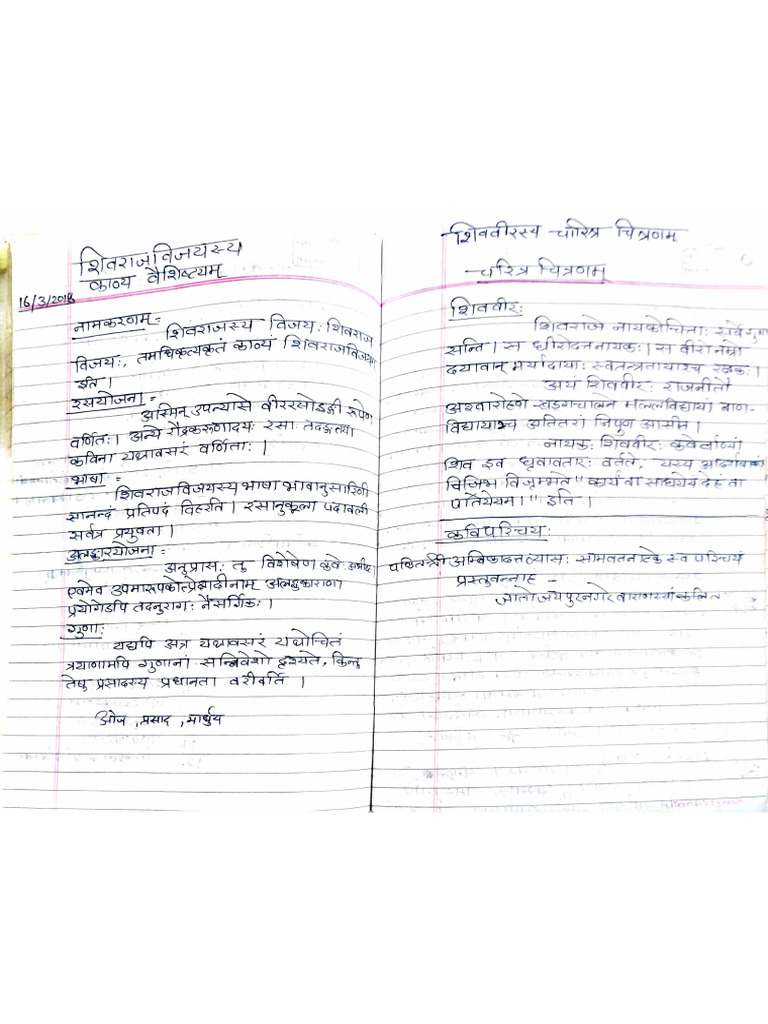 शिवराजविजयस्य
काव्य वैशिष्टयम्
16/3/2018
नामकरणम् =
शिवराजस्य विजय: शिवराज
विजय:, तमधिकृत्यकृतं काव्यं शिवराजविजय
इति ।
रसयोजना =
अस्मिन् उपन्यासे वीररसोऽङ्गी रूपेण
वर्णित: । अन्ये रौद्रकरुणादय: रसा: तदङ्गतया
कविना यथावसरं वर्णिता: ।
भाषा =
शिवराजविजयस्य भाषा भावानुसारिणी
सानन्दं प्रतिपदं विहरति । रसानुकूला पदावली
सर्वत्र प्रयुक्ता ।
अलङ्कारयोजना =
अनुप्रास: तु विशेषेण कवे:
एवमेव उपमारूपकोत्प्रेक्षादीनाम् अलङ्काराणां
प्रयोगेऽपि तदनुराग: नैसर्गिक: ।
गुणा:
यद्यपि अत्र यथावसरं यथोचितं
त्रयाणामपि गुणानां सन्निवेशो दृश्यते, किन्तु
तेषु प्रसादस्य प्रधानता वरीवर्ति ।
ओज, प्रसाद, मार्धुय
शिववीरस्य चारित्र चित्रणम्
चरित्र चित्रणम्
शिववीर:
शिवराजे नायकोचिता: सर्वे गुणा
सन्ति । स धीरोदत्तनायक: । स वीरो नम्रो
दयावान् मर्यादाया: स्वतन्त्रतायाश्च रक्षक: ।
अयं शिववीर: राजनीतौ
अश्वारोहणे खड्गचालने मल्लविद्यायां बाण-
विद्यायाञ्च अतितरां निपुण आसीत् ।
नायक: शिववीर: कवेर्वाण्यां
शिव इव धृतावतार: वर्तते, यस्य
विजृम्भते "कार्यं वा साधयेयं देहं वा
पातयेयम् ।" इति ।
कविपरिचय:
पण्डितश्री अम्बिकादत्तव्यास: सामवतनाटके स्व परिचयं
प्रस्तुवन्नाह -
जातो जयपुरनगरे वाराणस्यां कलित